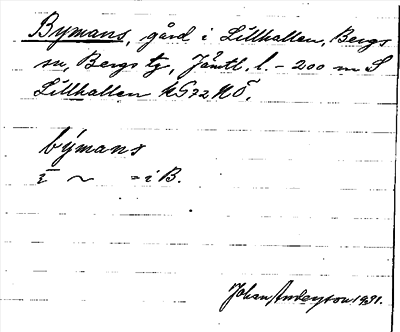 Bymans, gård i Lillhallen, Bergs
sn, Bergs tg, Jämtl. l. - 200 m S
Lillhallen KG72NÖ.
býmans
i ~ = i B.
Johan Anderson 1931.